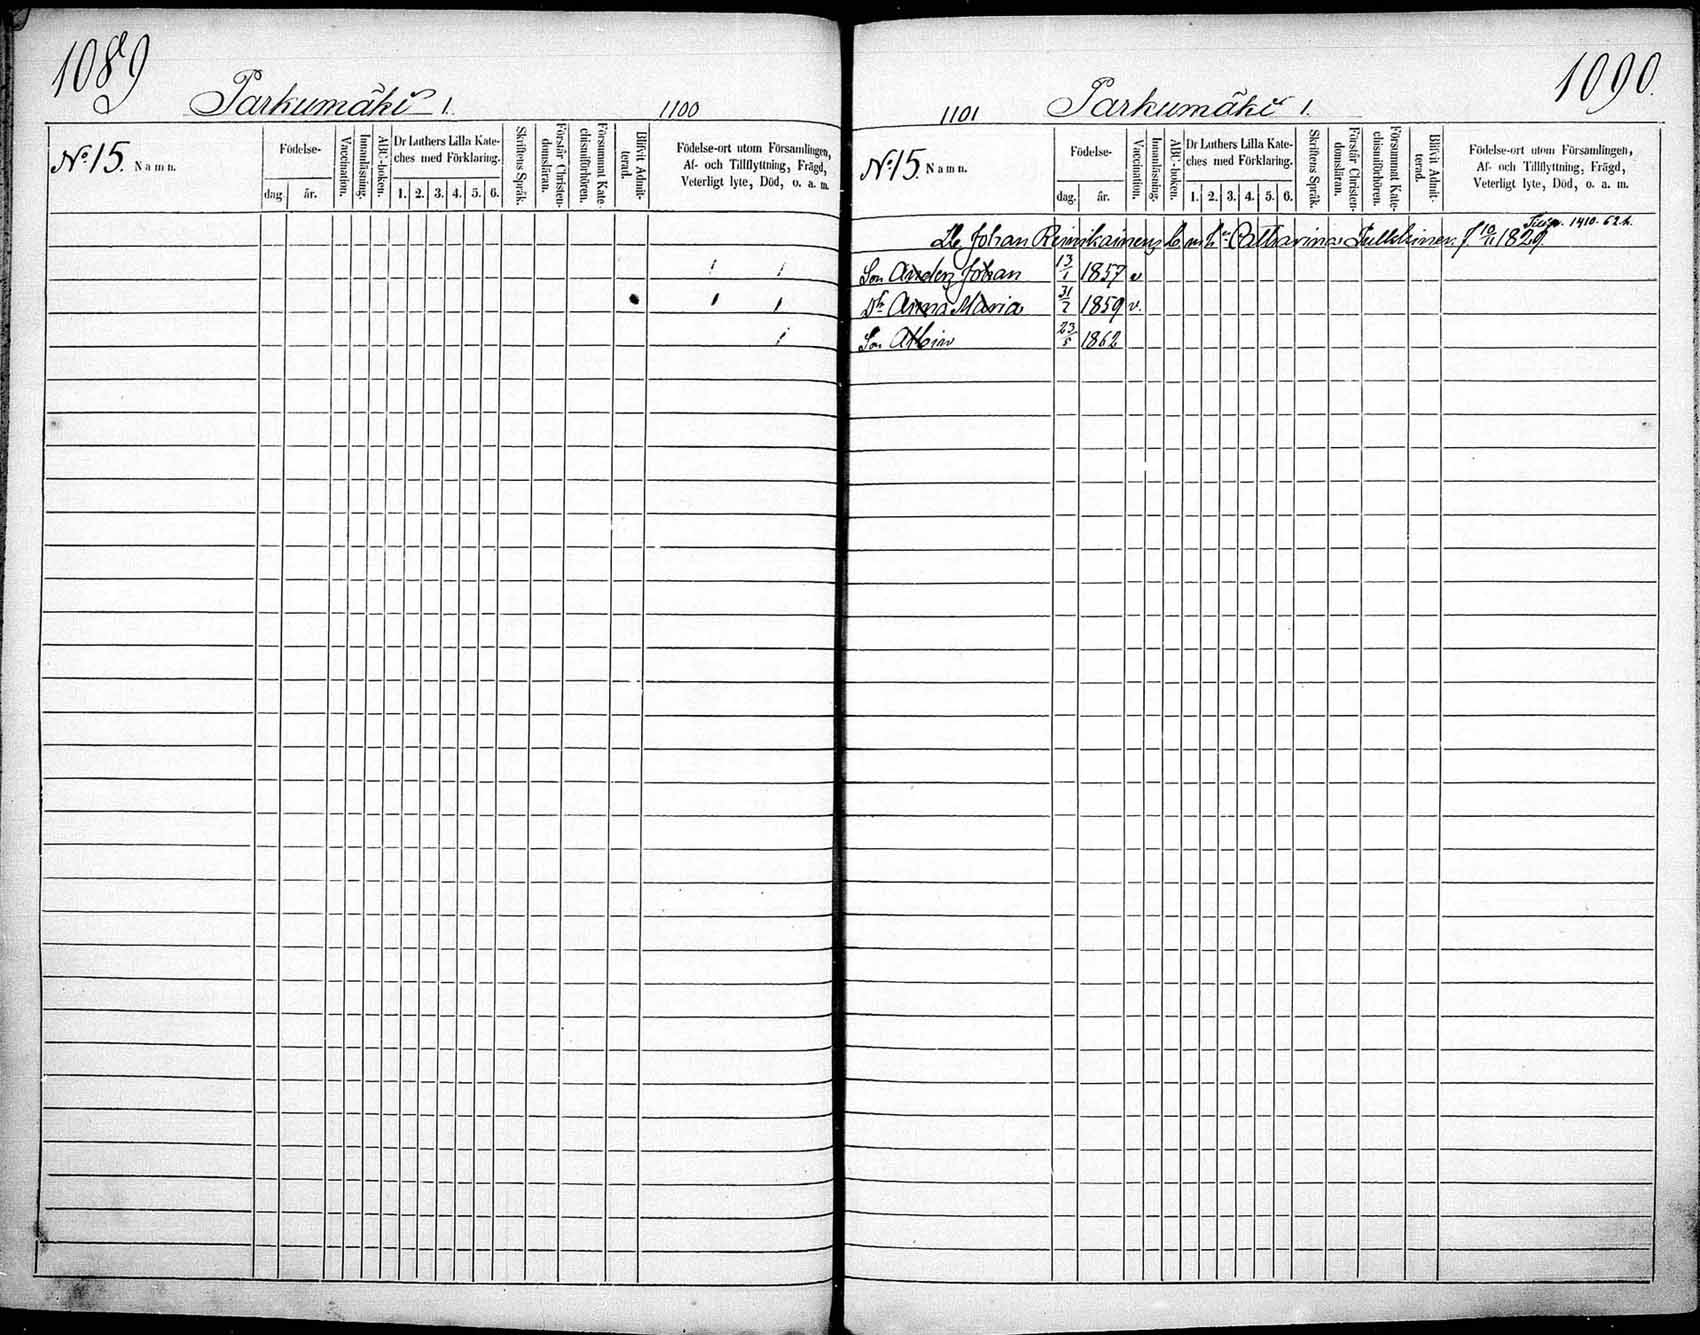 1089
Parkumäki 1.
1100
No 15. Namn.
Födelse-
dag
år.
Vaccination.
Innanläsning.
ABC-boken.
Dr Luthers Lilla Kate-
ches med Förklaring.
1. 2. 3. 4. 5. 6.
Skriftens Språk.
Förstår Christen-
domsläran.
Försummat Kate-
chismiförhören.
Blifvit Admit-
terad.
Födelse-ort utom Församlingen,
Af- och Tillflyttning, Frägd,
Veterligt lyte, Död, o. a. m.
1090.
1101
Parkumäki 1.
No 15. Namn.
Födelse-
dag.
år.
Vaccination.
Innanläsning.
ABC-boken.
Dr Luthers Lilla Kate-
ches med Förklaring.
1. 2. 3. 4. 5. 6.
Skriftens Språk.
Förstår Christen-
domsläran.
Försummat Kate-
chismiförhören.
Blifvit Admit-
terad.
Födelse-ort utom Församlingen,
Af- och Tillflyttning, Frägd,
Veterligt lyte, Död, o. a. m.
1410. 62.
Johan Reinikainens Catharina f. 10/11 1829
Son Anders Johan 13/1 1857 v
Dr Anna Maria 1859 v.
Son Albin 23/5 1862